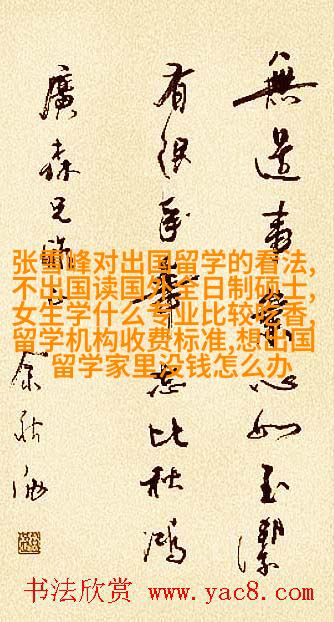 無邊事業心如玉潔
有限年華志比秋鴻
廣森兄
余秋
张雪峰对出国留学的看法,
不出国读国外全日制硕士,
女生学什么专业比较吃香,
留学机构收费标准,想出国
留学家里没钱怎么办
书法欣赏 www.yac8.com